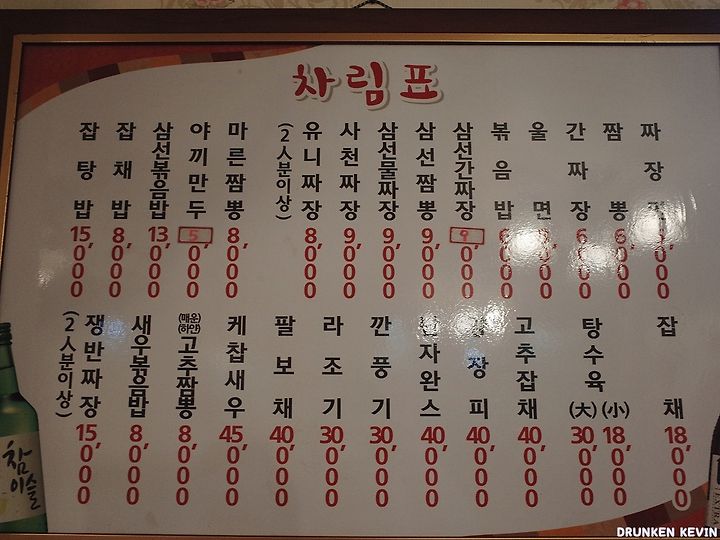 차림표
짜장
짬뽕 6,000
간짜장 6,000
울면
볶음밥
삼선간짜장 9,000
삼선짬뽕 9,000
삼선물짜장 9,000
사천짜장 9,000
유니짜장 8,000
(2人분이상)
마른짬뽕 8,000
야끼만두 5,000
삼선볶음밥 13,000
잡채밥 8,000
잡탕밥 15,000
잡채 18,000
탕수육 (小) 18,000
(大) 30,000
고추잡채 40,000
장피 40,000
자완스 40,000
깐풍기 30,000
라조기 30,000
팔보채 40,000
케찹새우 45,000
(매운) (하얀) 고추짬뽕 8,000
새우볶음밥 8,000
쟁반짜장 15,000
(2人분이상)
참이슬
DRUNKEN KEVIN